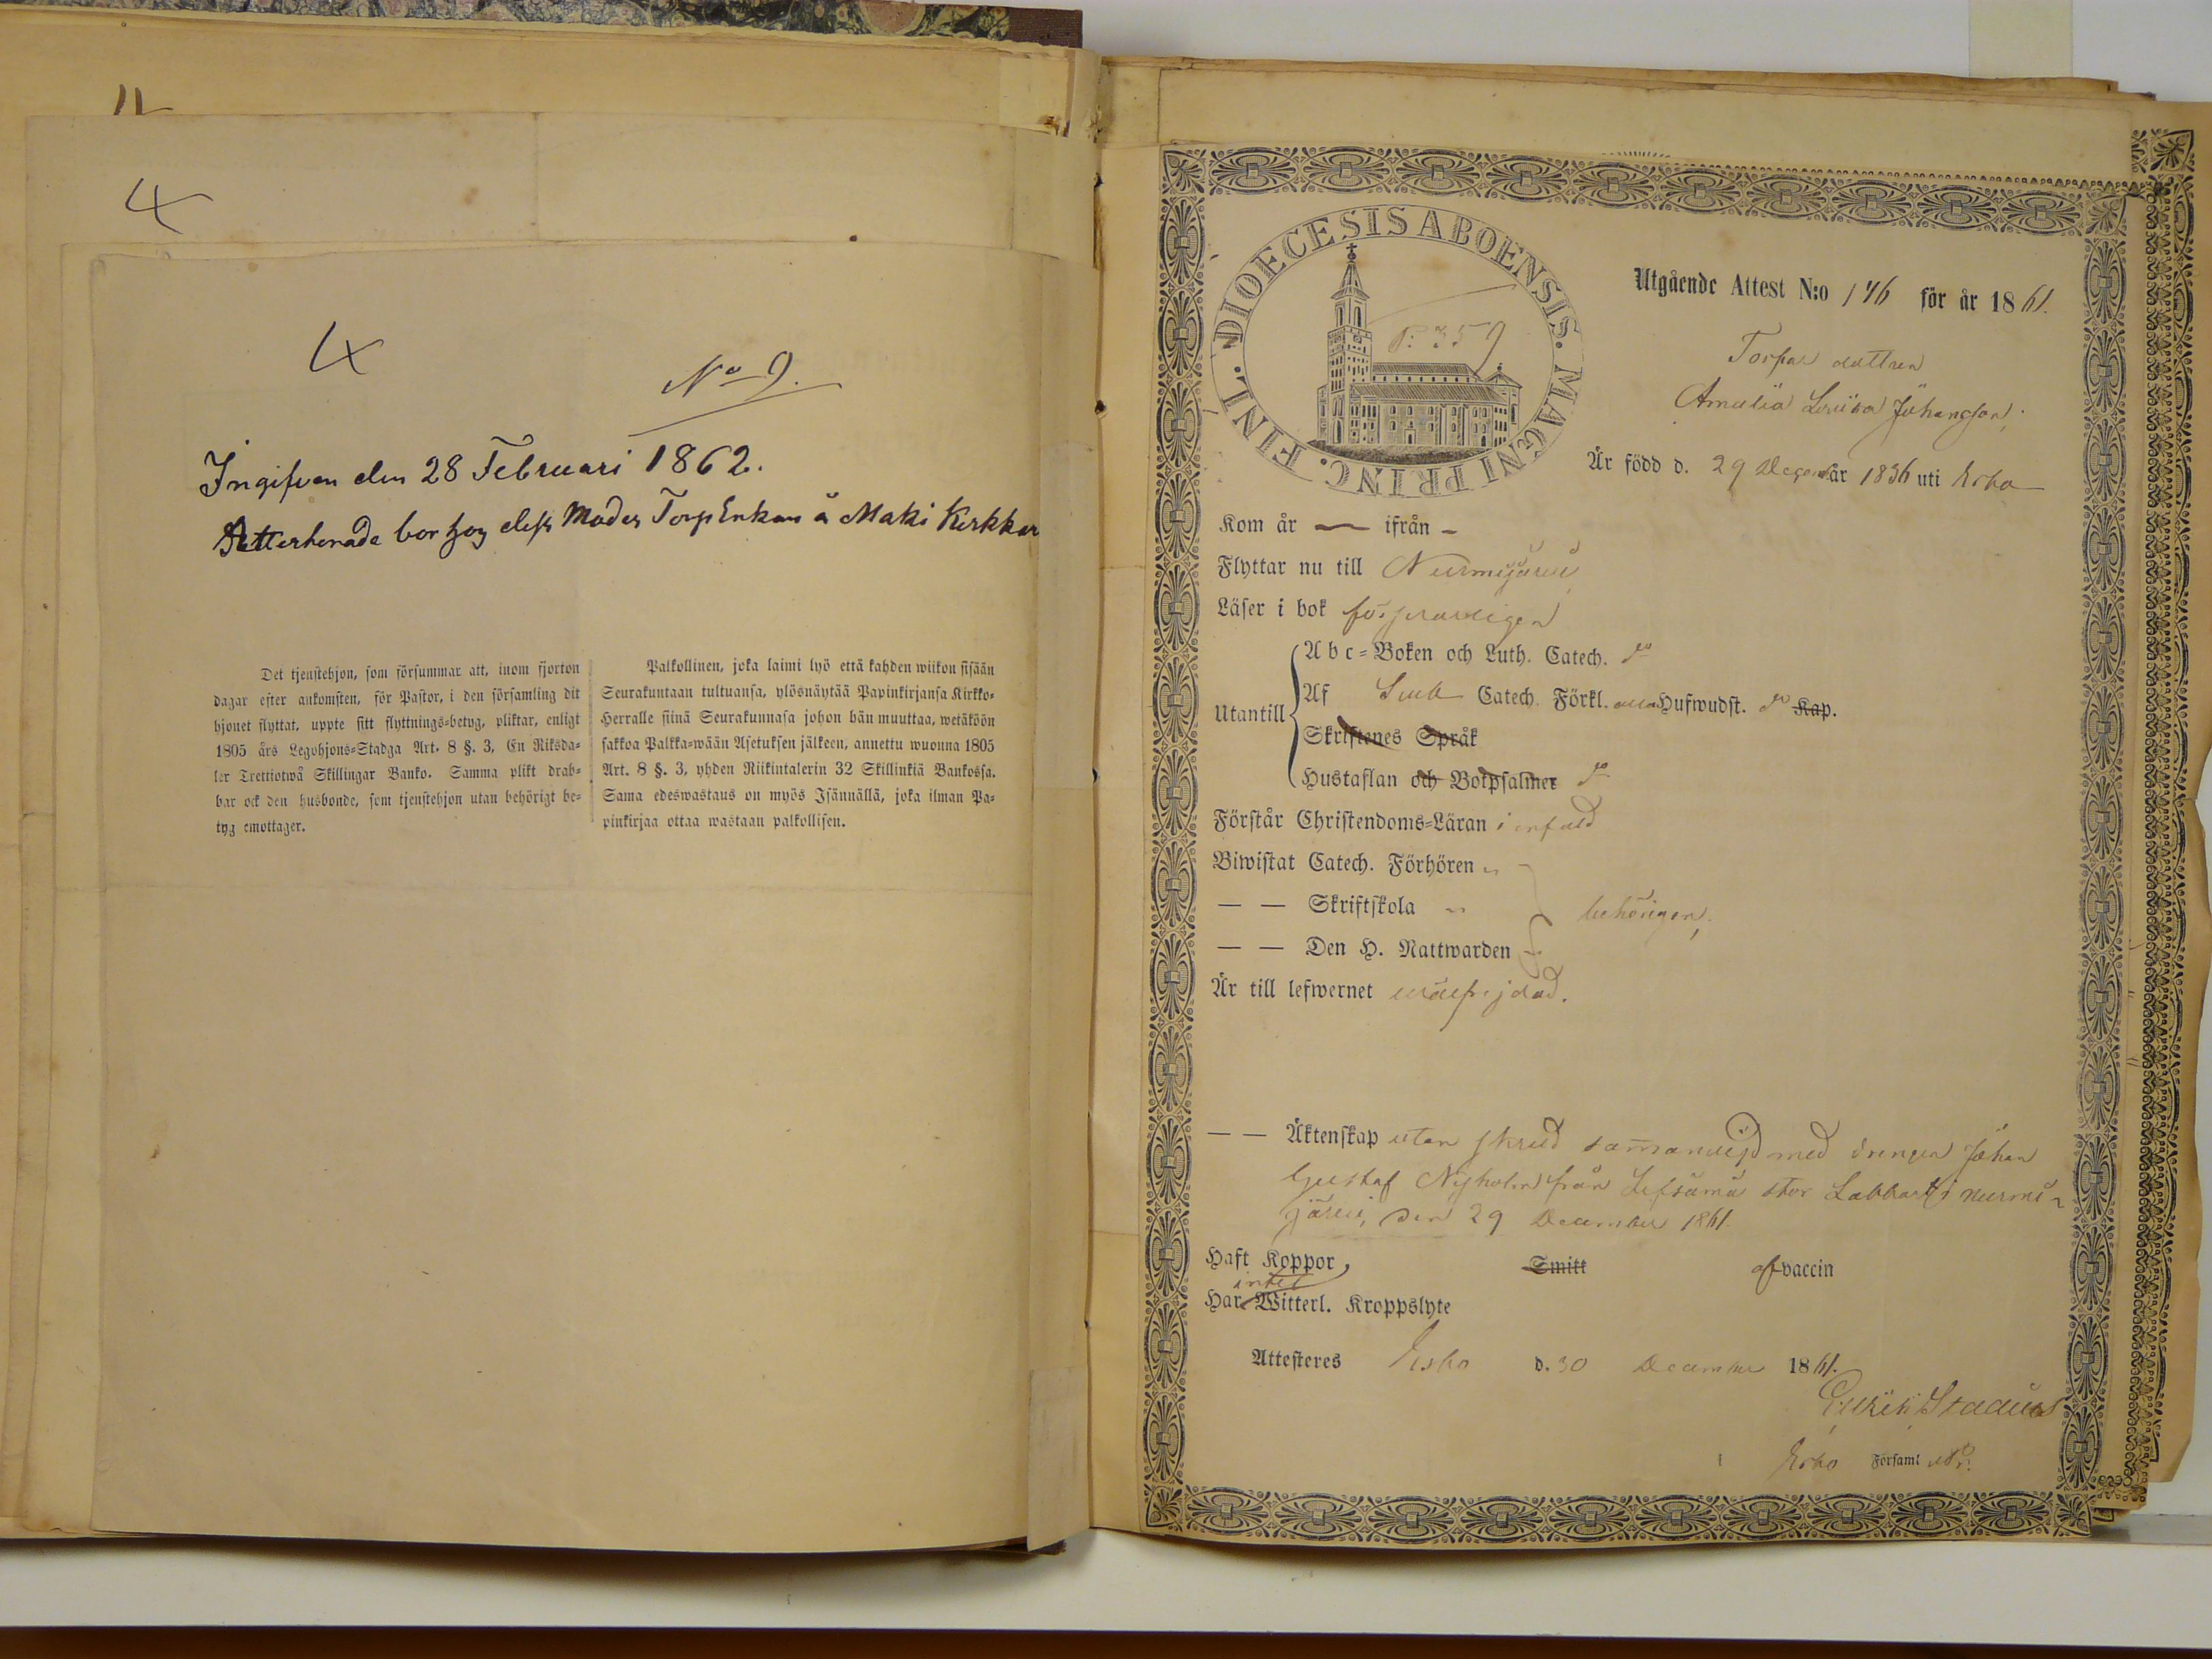 12
4
4
No 9.
Ingifven den 28 Februari 1862.
bor hos dess Moder TorpEnkan å Maki Kirkker
Det tjenstehjon, som försummar att, inom fjorton
dagar efter ankomsten, för Pastor, i den församling dit
hjonet flyttat, uppte sitt flyttnings-betyg, pliktar, enligt
1805 års Legohjons-Stadga Art. 8 §. 3, En Riksda-
ler Trettiotwå Skillingar Banko. Samma plikt drab-
bar ock den husbonde, som tjenstehjon utan behörigt be-
tyg emottager.
Palkollinen, joka laimi lyö että kahden wiikon sisään
Seurakuntaan tultuansa, ylösnäytää Papinkirjansa Kirkko-
Herralle siinä Seurakunnasa johon hän muuttaa, wetäköön
sakkoa Palkka-wään Asetuksen jälkeen, annettu wuonna 1805
Art. 8 §. 3, yhden Riikintalerin 32 Skillinkiä Bankossa.
Sama edeswastaus on myös Isännällä, joka ilman Pa-
pinkirjaa ottaa wastaan palkollisen.
DIOECESIS ABOENSIS. MAGNI PRINC. FINL.
P. 359
Utgående Attest N:o 146 för år 1861.
Torpar dottren
Amalia Lovisa Johansson,
Är född d. 29 December år 1836 uti Esbo
Kom år — ifrån –
Flyttar nu till Nurmijärvi
Läser i bok försvarligen
Abc-Boken och Luth. Catech. do
Utantill
Af Catech. Förkl. alla Hufwudst. do Kap.
Skriftenes Språk
Hustaflan och Botpsalmer do
Förstår Christendoms-Läran i enfald
Biwistat Catech. Förhören "
— — Skriftskola " behörigen,
— — Den H. Nattwarden
Är till lefwernet wälfrejdad.
— — Äktenskap utan skrud sammanvigd med drengen Johan
Gustaf Nyholm från Lefsämä stor Labbart i Nurmi-
järvi, den 29 December 1861
Haft Koppor, Smitt af vaccin
intet
Har Witterl. Kroppslyte
Attesteres Esbo d. 30 December 1861.
Stadius
i Esbo Församl